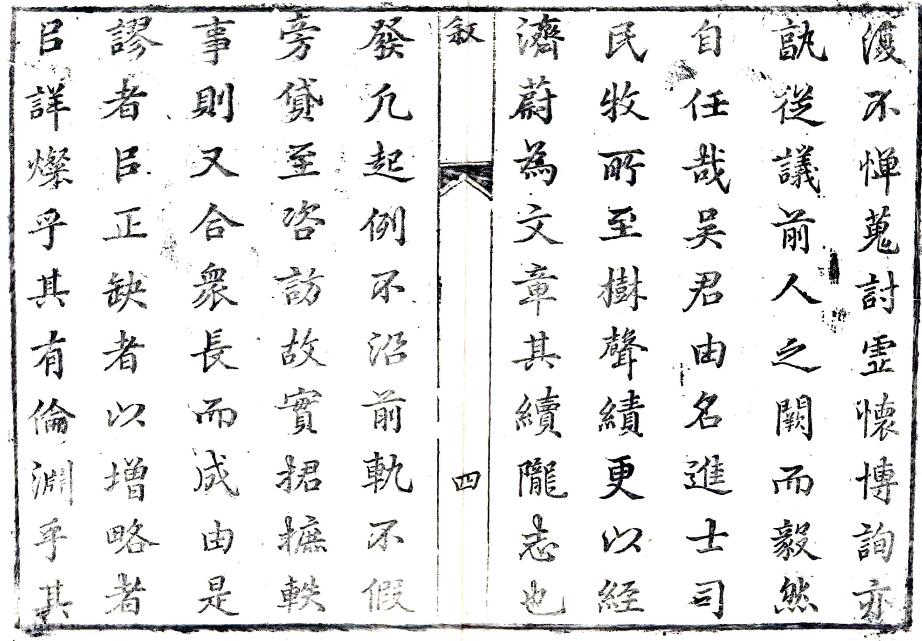 護不憚蒐討虛懷博詢亦
孰從議前人之闕而毅然
自任哉吴君由名進士司
民牧所至樹聲績更以經
濟蔚為文章其續隴志也
敘
四
發凢起例不沿前軌不假
旁貸至咨訪故實捃摭軼
事則又合衆長而成由是
謬者㠯正缺者以增略者
㠯詳燦乎其有倫淵乎其